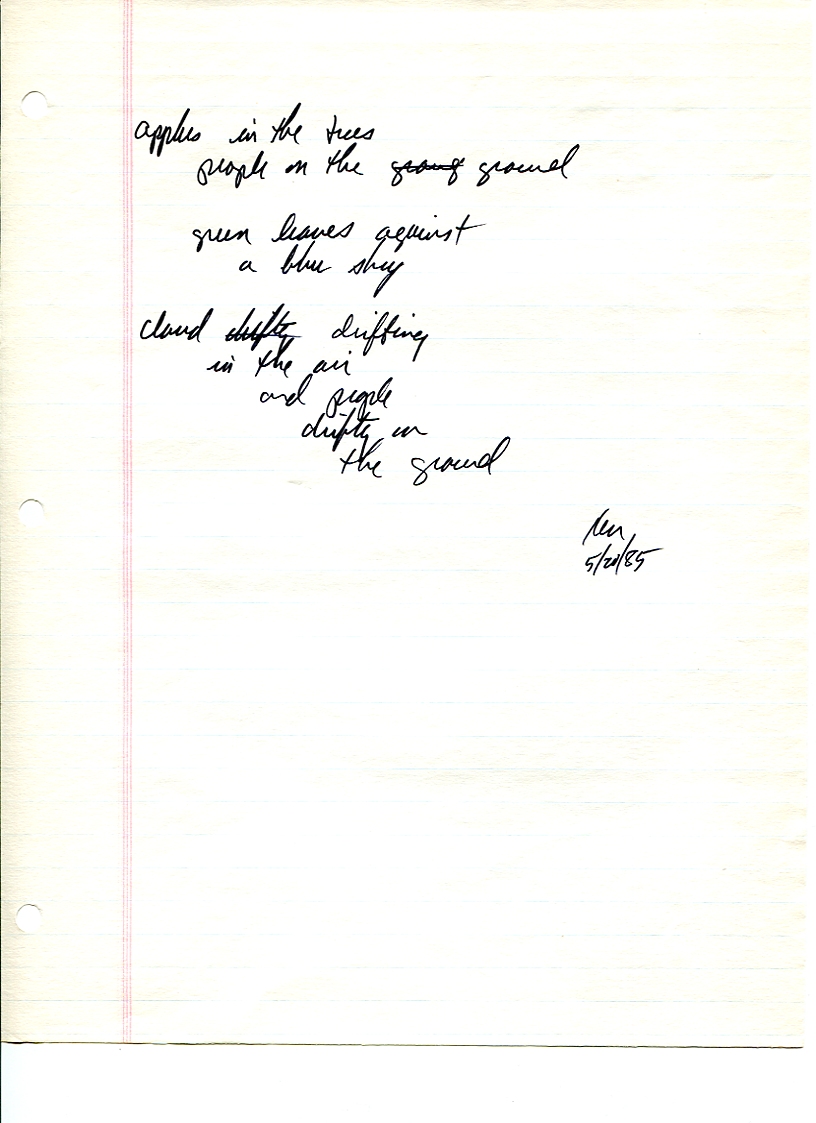 apples in the trees
people on the ground
green leaves against
a blue sky
cloud drifting
in the air
and people
drifting on
the ground
5/20/85